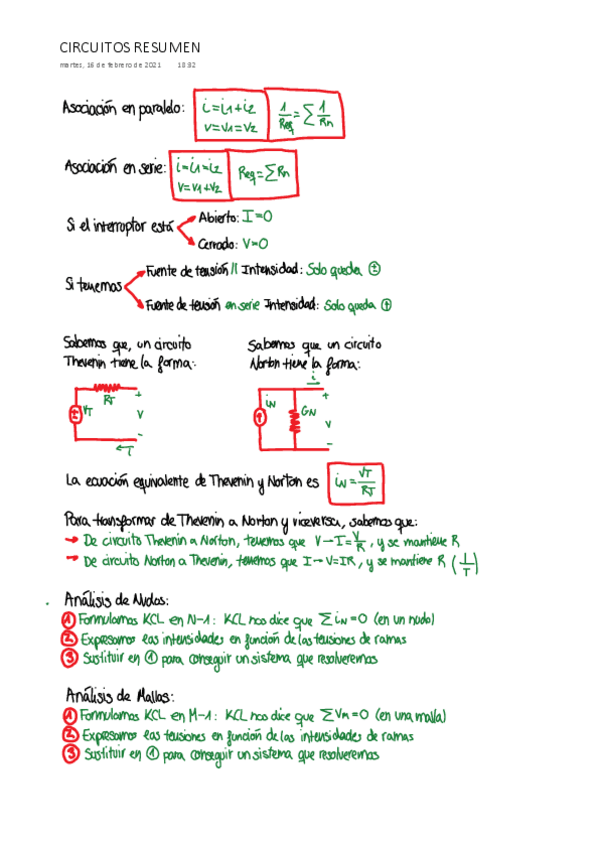 CIRCUITOS RESUMEN
martes, 16 de febrero de 2021 10:32
Asociación en paralelo: i=i1+i2 1/Req=∑1/Rn
v=v1=v2
Asociación en serie: i=i1=i2 Req=∑Rn
v=v1+v2
Si el interruptor está Abierto: I=0
Cerrado: V=0
Si tenemos Fuente de tensión // Intensidad: Solo queda ±
Fuente de tensión en serie Intensidad: Solo queda ↑
Sabemos que, un circuito
Thevenin tiene la forma:
Sabemos que un circuito
Norton tiene la forma:
RT + VT V - I
i + iN GN v -
La ecuación equivalente de Thevenin y Norton es iN=VT/RT
Para transformar de Thevenin a Norton y viceversa, sabemos que:
→ De circuito Thevenin a Norton, tenemos que V→I=V/R, y se mantiene R
→ De circuito Norton a Thevenin, tenemos que I→V=IR, y se mantiene R
Análisis de Nudos:
1 Formulamos KCL en N-1: KCL nos dice que ∑iN=0 (en un nudo)
2 Expresamos las intensidades en función de las tensiones de ramas
3 Sustituir en 1 para conseguir un sistema que resolveremos
Análisis de Mallas:
1 Formulamos KCL en M-1: KCL nos dice que ∑VM=0 (en una malla)
2 Expresamos las tensiones en función de las intensidades de ramas
3 Sustituir en 1 para conseguir un sistema que resolveremos